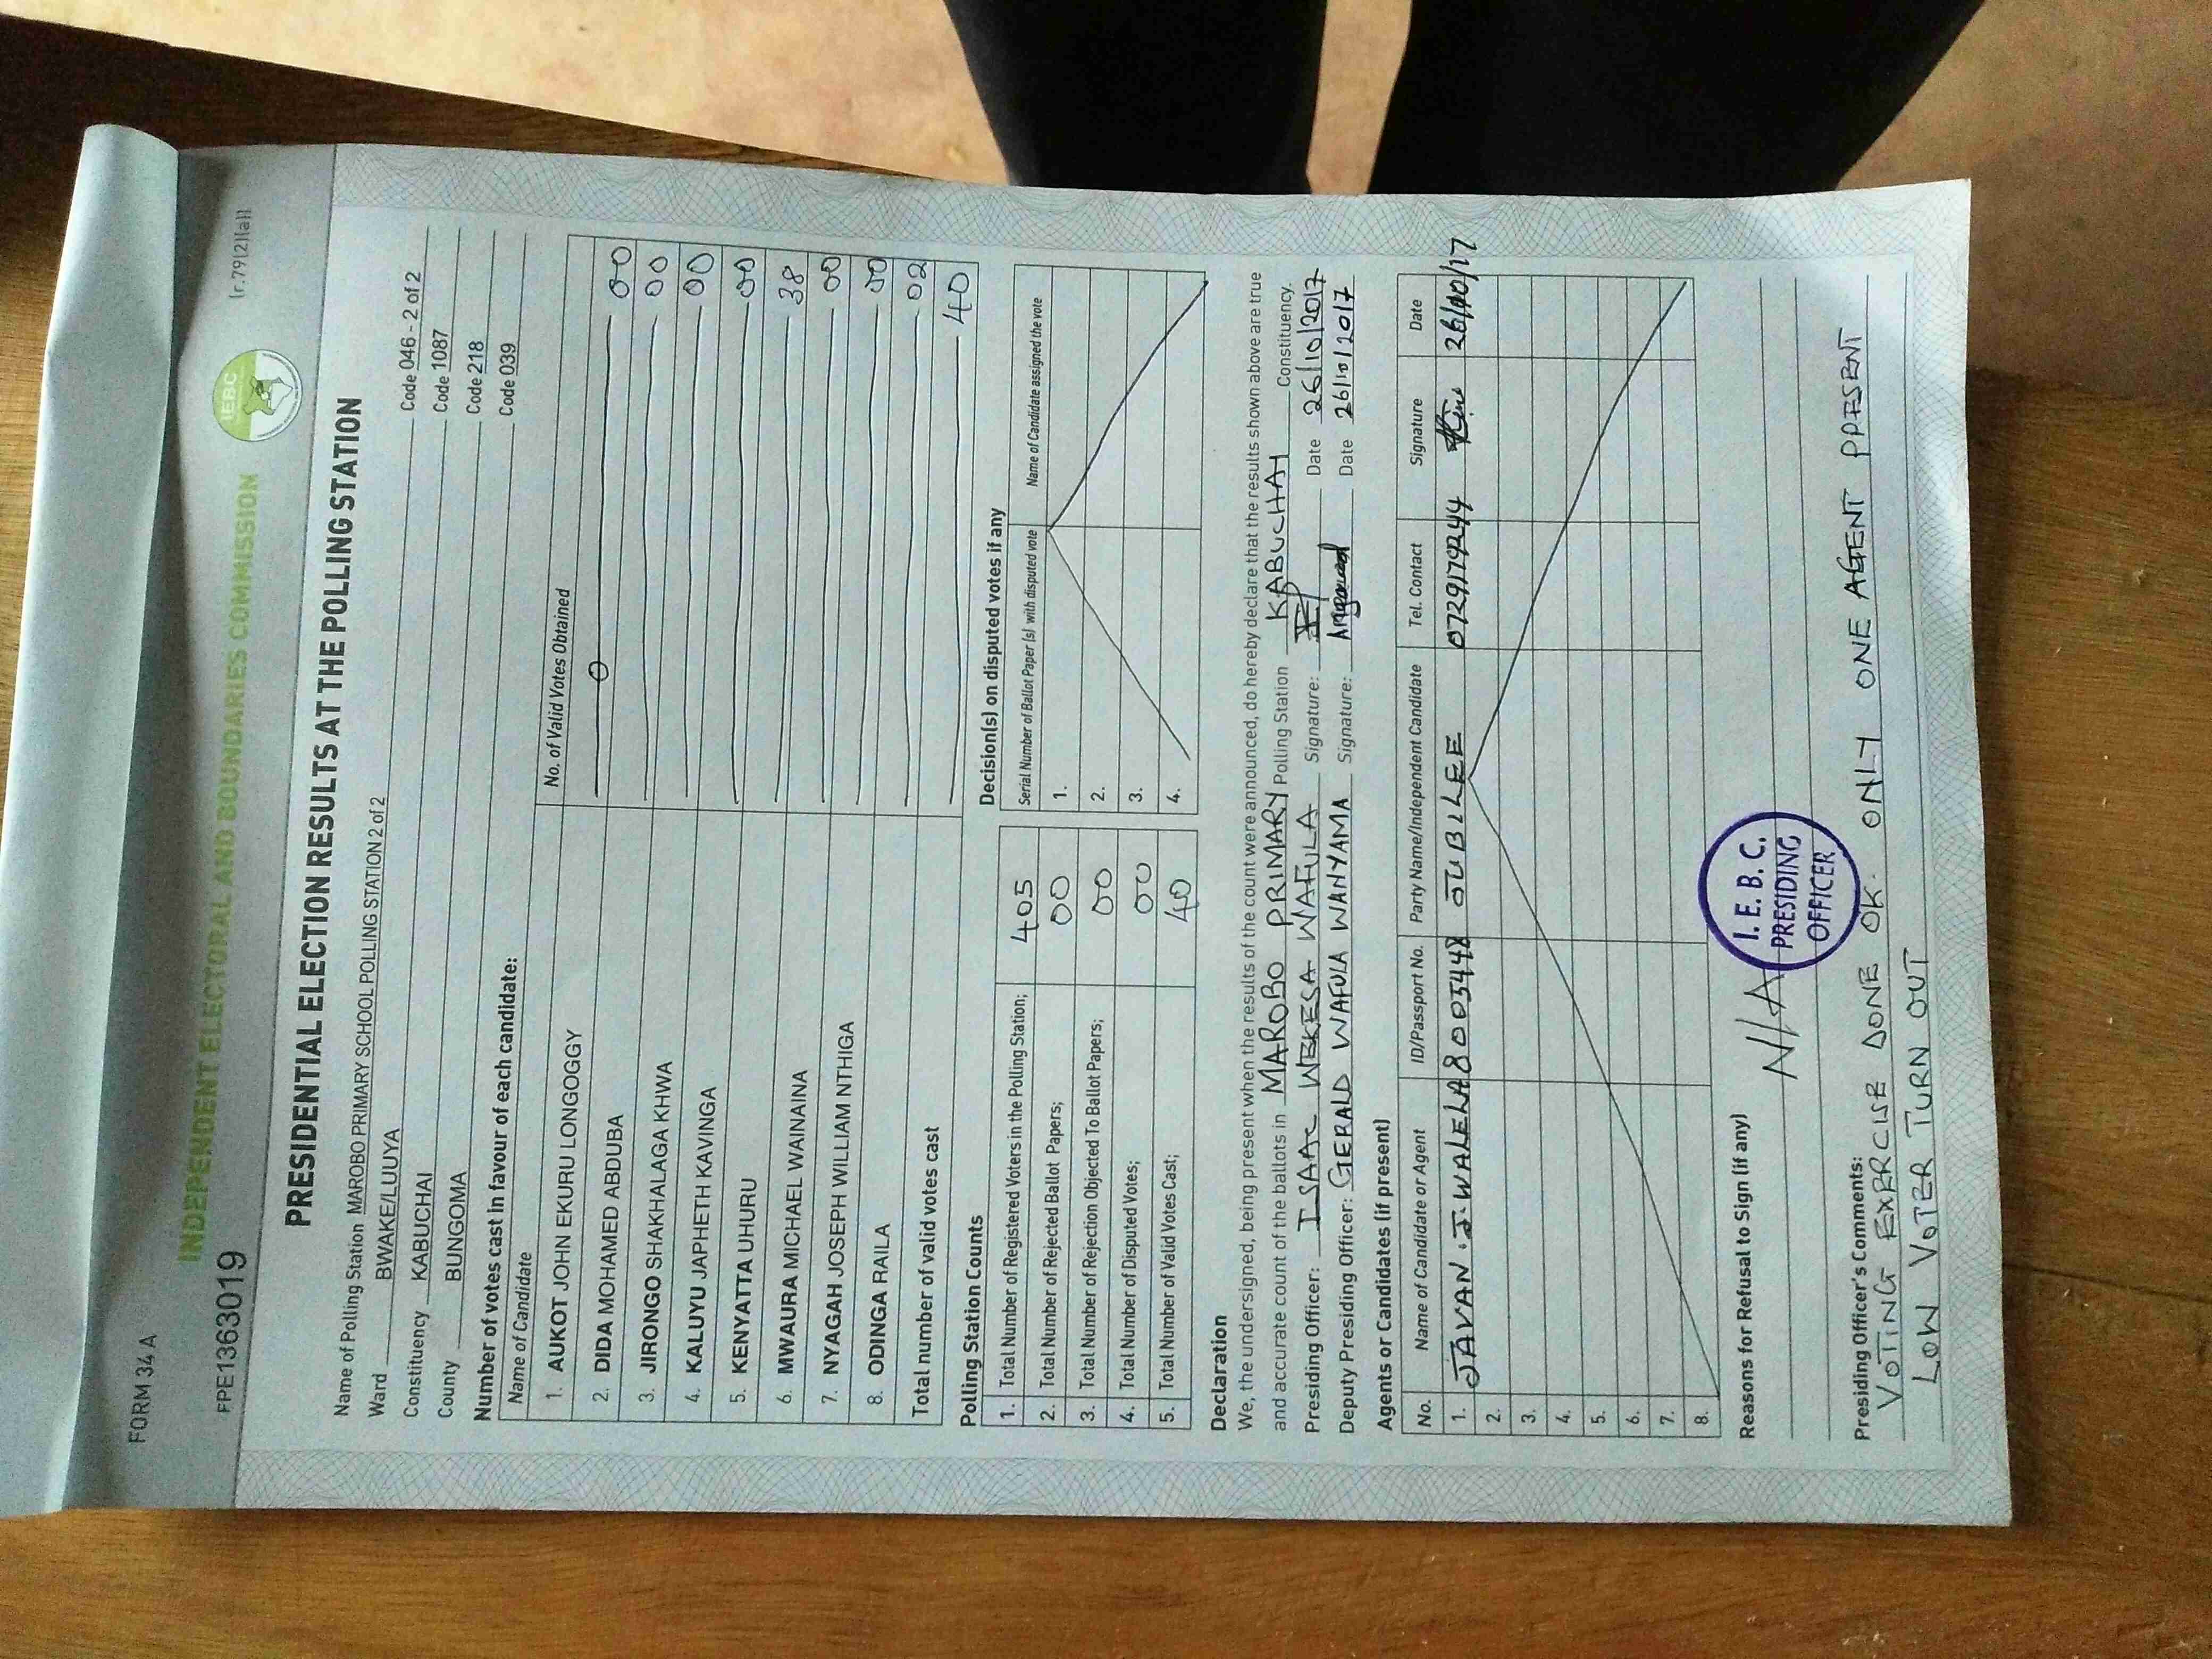 FORM 34 A
FPE1363019
(r.79(2)(a))
IEBC
INDEPENDENT ELECTORAL AND BOUNDARIES COMMISSION
PRESIDENTIAL ELECTION RESULTS AT THE POLLING STATION
Name of Polling Station MAROBO PRIMARY SCHOOL POLLING STATION 2 of 2 Code 046 - 2 of 2
Ward BWAKE/LUUYA Code 1087
Constituency KABUCHAI Code 218
County BUNGOMA Code 039
Number of votes cast in favour of each candidate:
Name of Candidate No. of Valid Votes Obtained
1. AUKOT JOHN EKURU LONGOGGY 00
2. DIDA MOHAMED ABDUBA 00
3. JIRONGO SHAKHALAGA KHWA 00
4. KALUYU JAPHETH KAVINGA 00
5. KENYATTA UHURU 38
6. MWAURA MICHAEL WAINAINA 00
7. NYAGAH JOSEPH WILLIAM NTHIGA 00
8. ODINGA RAILA 02
Total number of valid votes cast 40
Polling Station Counts
1. Total Number of Registered Voters in the Polling Station; 405
2. Total Number of Rejected Ballot Papers; 00
3. Total Number of Rejection Objected To Ballot Papers; 00
4. Total Number of Disputed Votes; 00
5. Total Number of Valid Votes Cast; 40
Decision(s) on disputed votes if any
Serial Number of Ballot Paper (s) with disputed vote Name of Candidate assigned the vote
1.
2.
3.
4.
Declaration
We, the undersigned, being present when the results of the count were announced, do hereby declare that the results shown above are true
and accurate count of the ballots in MAROBO PRIMARY Polling Station KABUCHAI Constituency.
Presiding Officer: ISAAC WEKESA WAFULA Signature: Date 26/10/2017
Deputy Presiding Officer: GERALD WAFULA WANYAMA Signature: Date 26/10/2017
Agents or Candidates (if present)
No. Name of Candidate or Agent ID/Passport No. Party Name/Independent Candidate Tel. Contact Signature Date
1. JAVAN .J. WALELA 8003448 JUBILEE 0729179244 26/10/17
2.
3.
4.
5.
6.
7.
8.
Reasons for Refusal to Sign (if any)
N/A
I. E. B. C.
PRESIDING
OFFICER
Presiding Officer's Comments:
VOTING EXERCISE DONE OK. ONLY ONE AGENT PRESENT
LOW VOTER TURN OUT